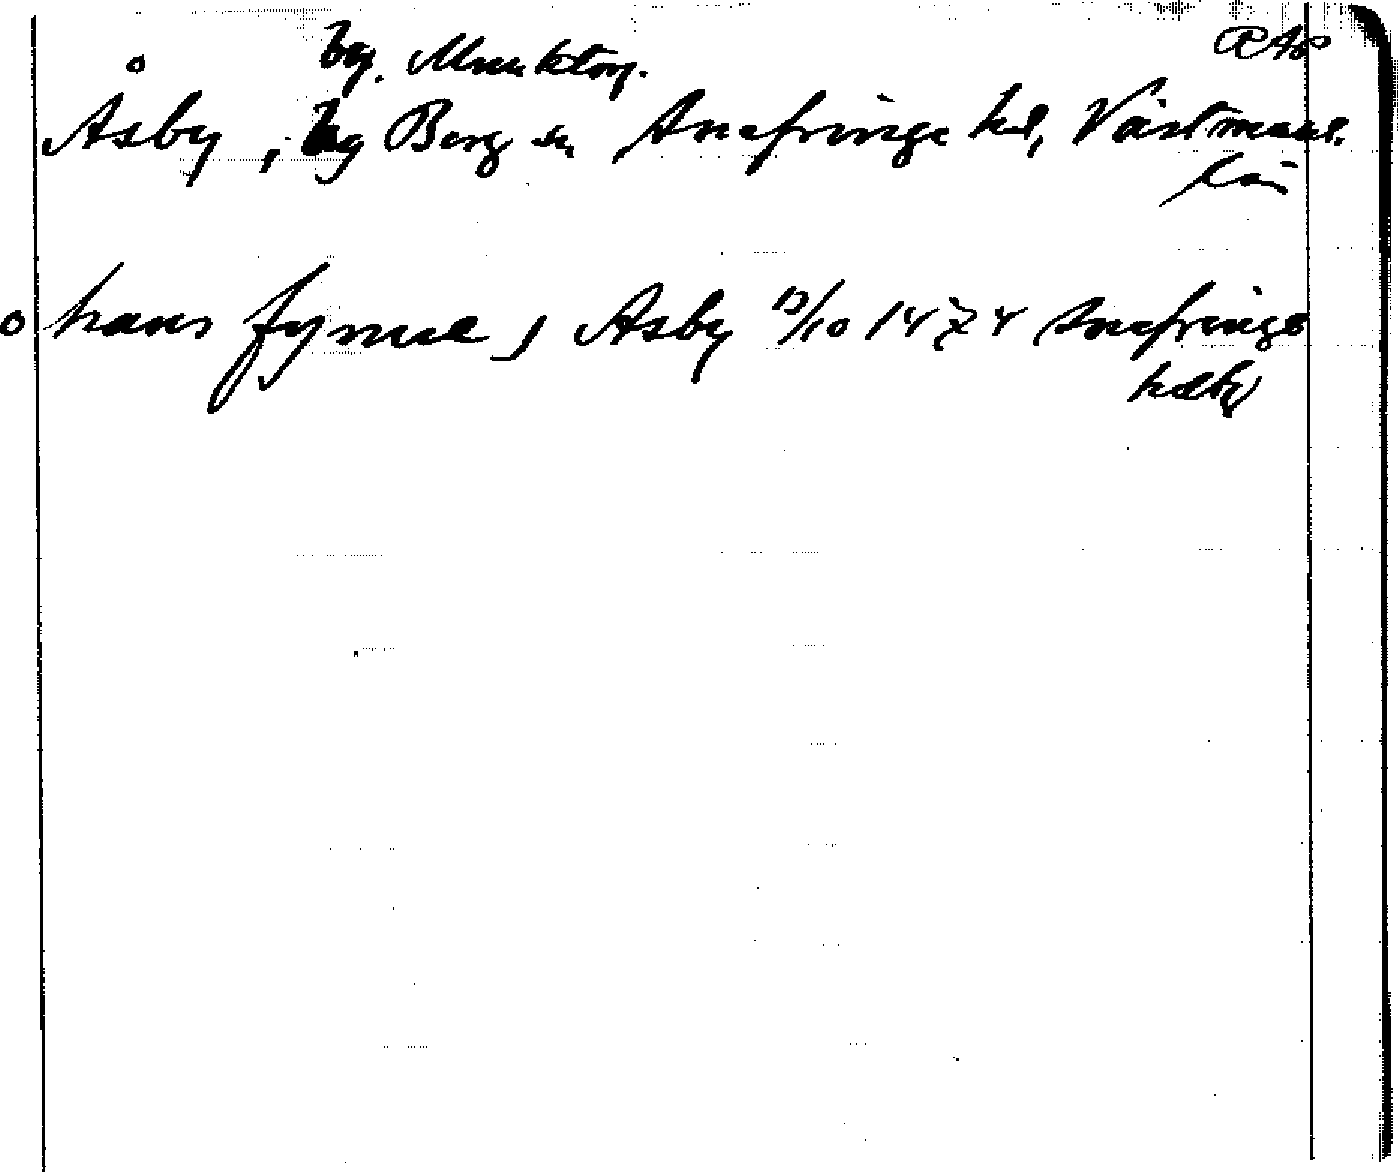 by. Munktorp. RAp
Åsby, by Berg sn Snefringe hd, Västmanl.
län
hans fynne j Asby 13/10 1474 Snefringe
hdbr